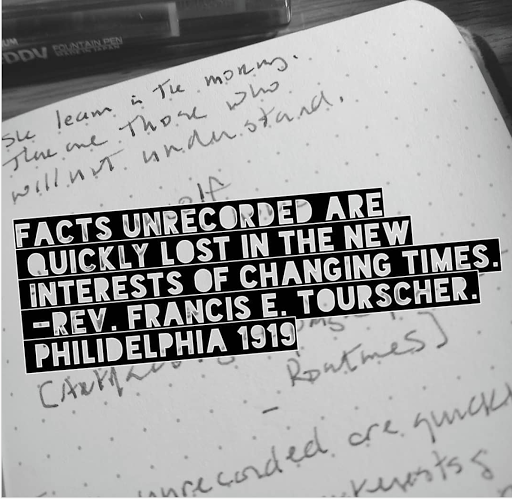 DDV FOUNTAIN PEN
learn in the morning.
There are those who
will not understand.
FACTS UNRECORDED ARE
QUICKLY LOST IN THE NEW
INTERESTS OF CHANGING TIMES.
-REV. FRANCIS E. TOURSCHER.
PHILIDELPHIA 1919
Routines]
unrecorded are quickl
interests of